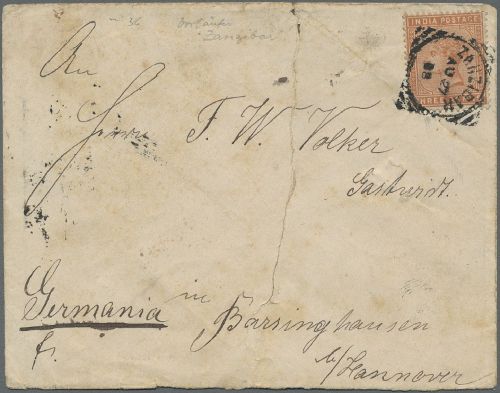 36 Vorläufer
Zanzibar
INDIA POSTAGE
ZANZIBAR
AU 27
88
An
Herrn F. W. Volker
Gastwirdt.
Germania in Barsinghausen
b/Hannover